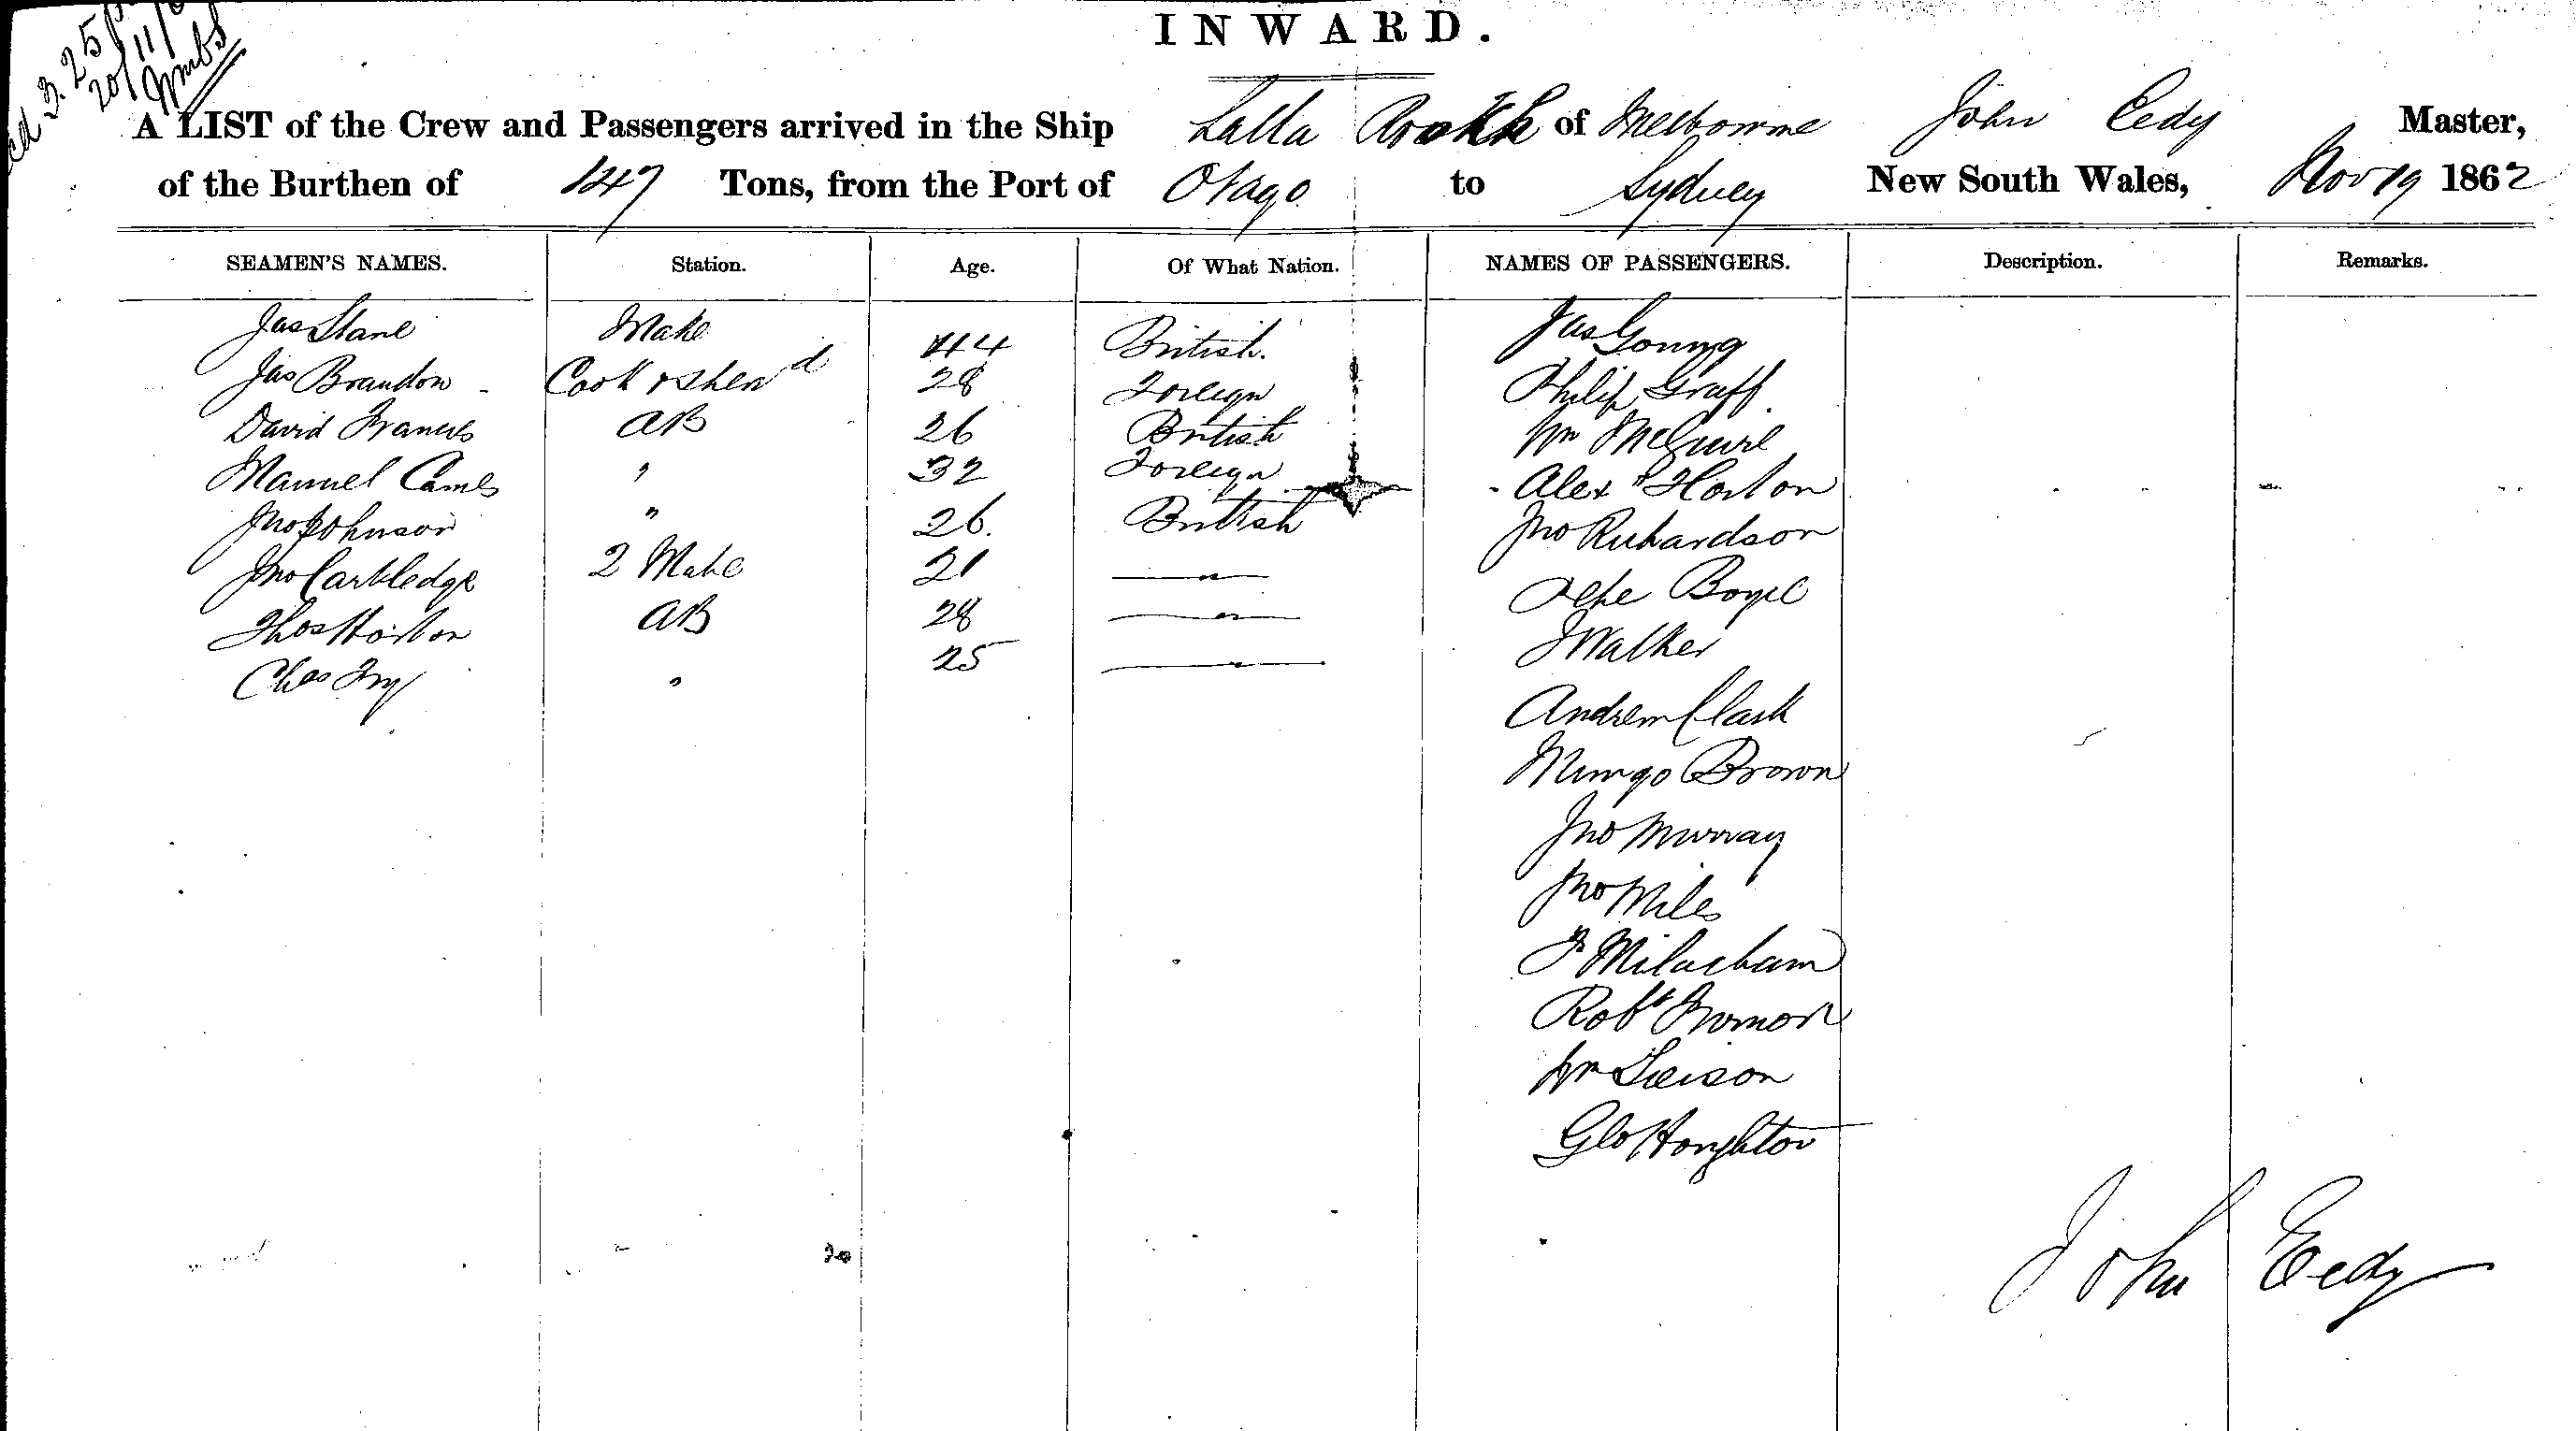 3.25
20/11/
INWARD.
A LIST of the Crew and Passengers arrived in the Ship Lalla Rookh of Melbourne John Eedy Master,
of the Burthen of 147 Tons, from the Port of Otago to Sydney New South Wales, Nov 19 1862
SEAMEN'S NAMES. Station. Age. Of What Nation. NAMES OF PASSENGERS. Description. Remarks.
Jas Stane Mate 44 British. Jas Young
Jas Brandon Cook & Stewd 28 Foreign Philip Graff
David Francis AB 26 British Wm McGuire
Manuel " 32 Foreign Alexr Horton
Jno Johnson " 26. British Jno Richardson
Jno Cartledge 2 Mate 21 " Boyle
Thos Horton AB 28 " J Walker
Chas Fry " 25 " Andrew Clark
Mungo Brown
Jno Murray
Jno Miles
Robt
Wm
Geo Houghton
John Eedy